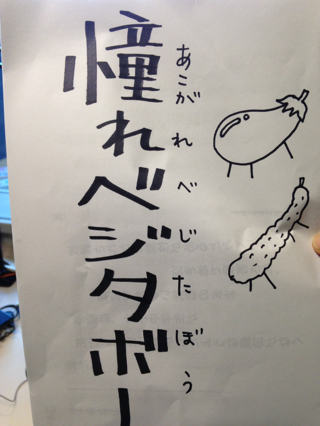 憧れベジタボー
あこがれべじたぼう